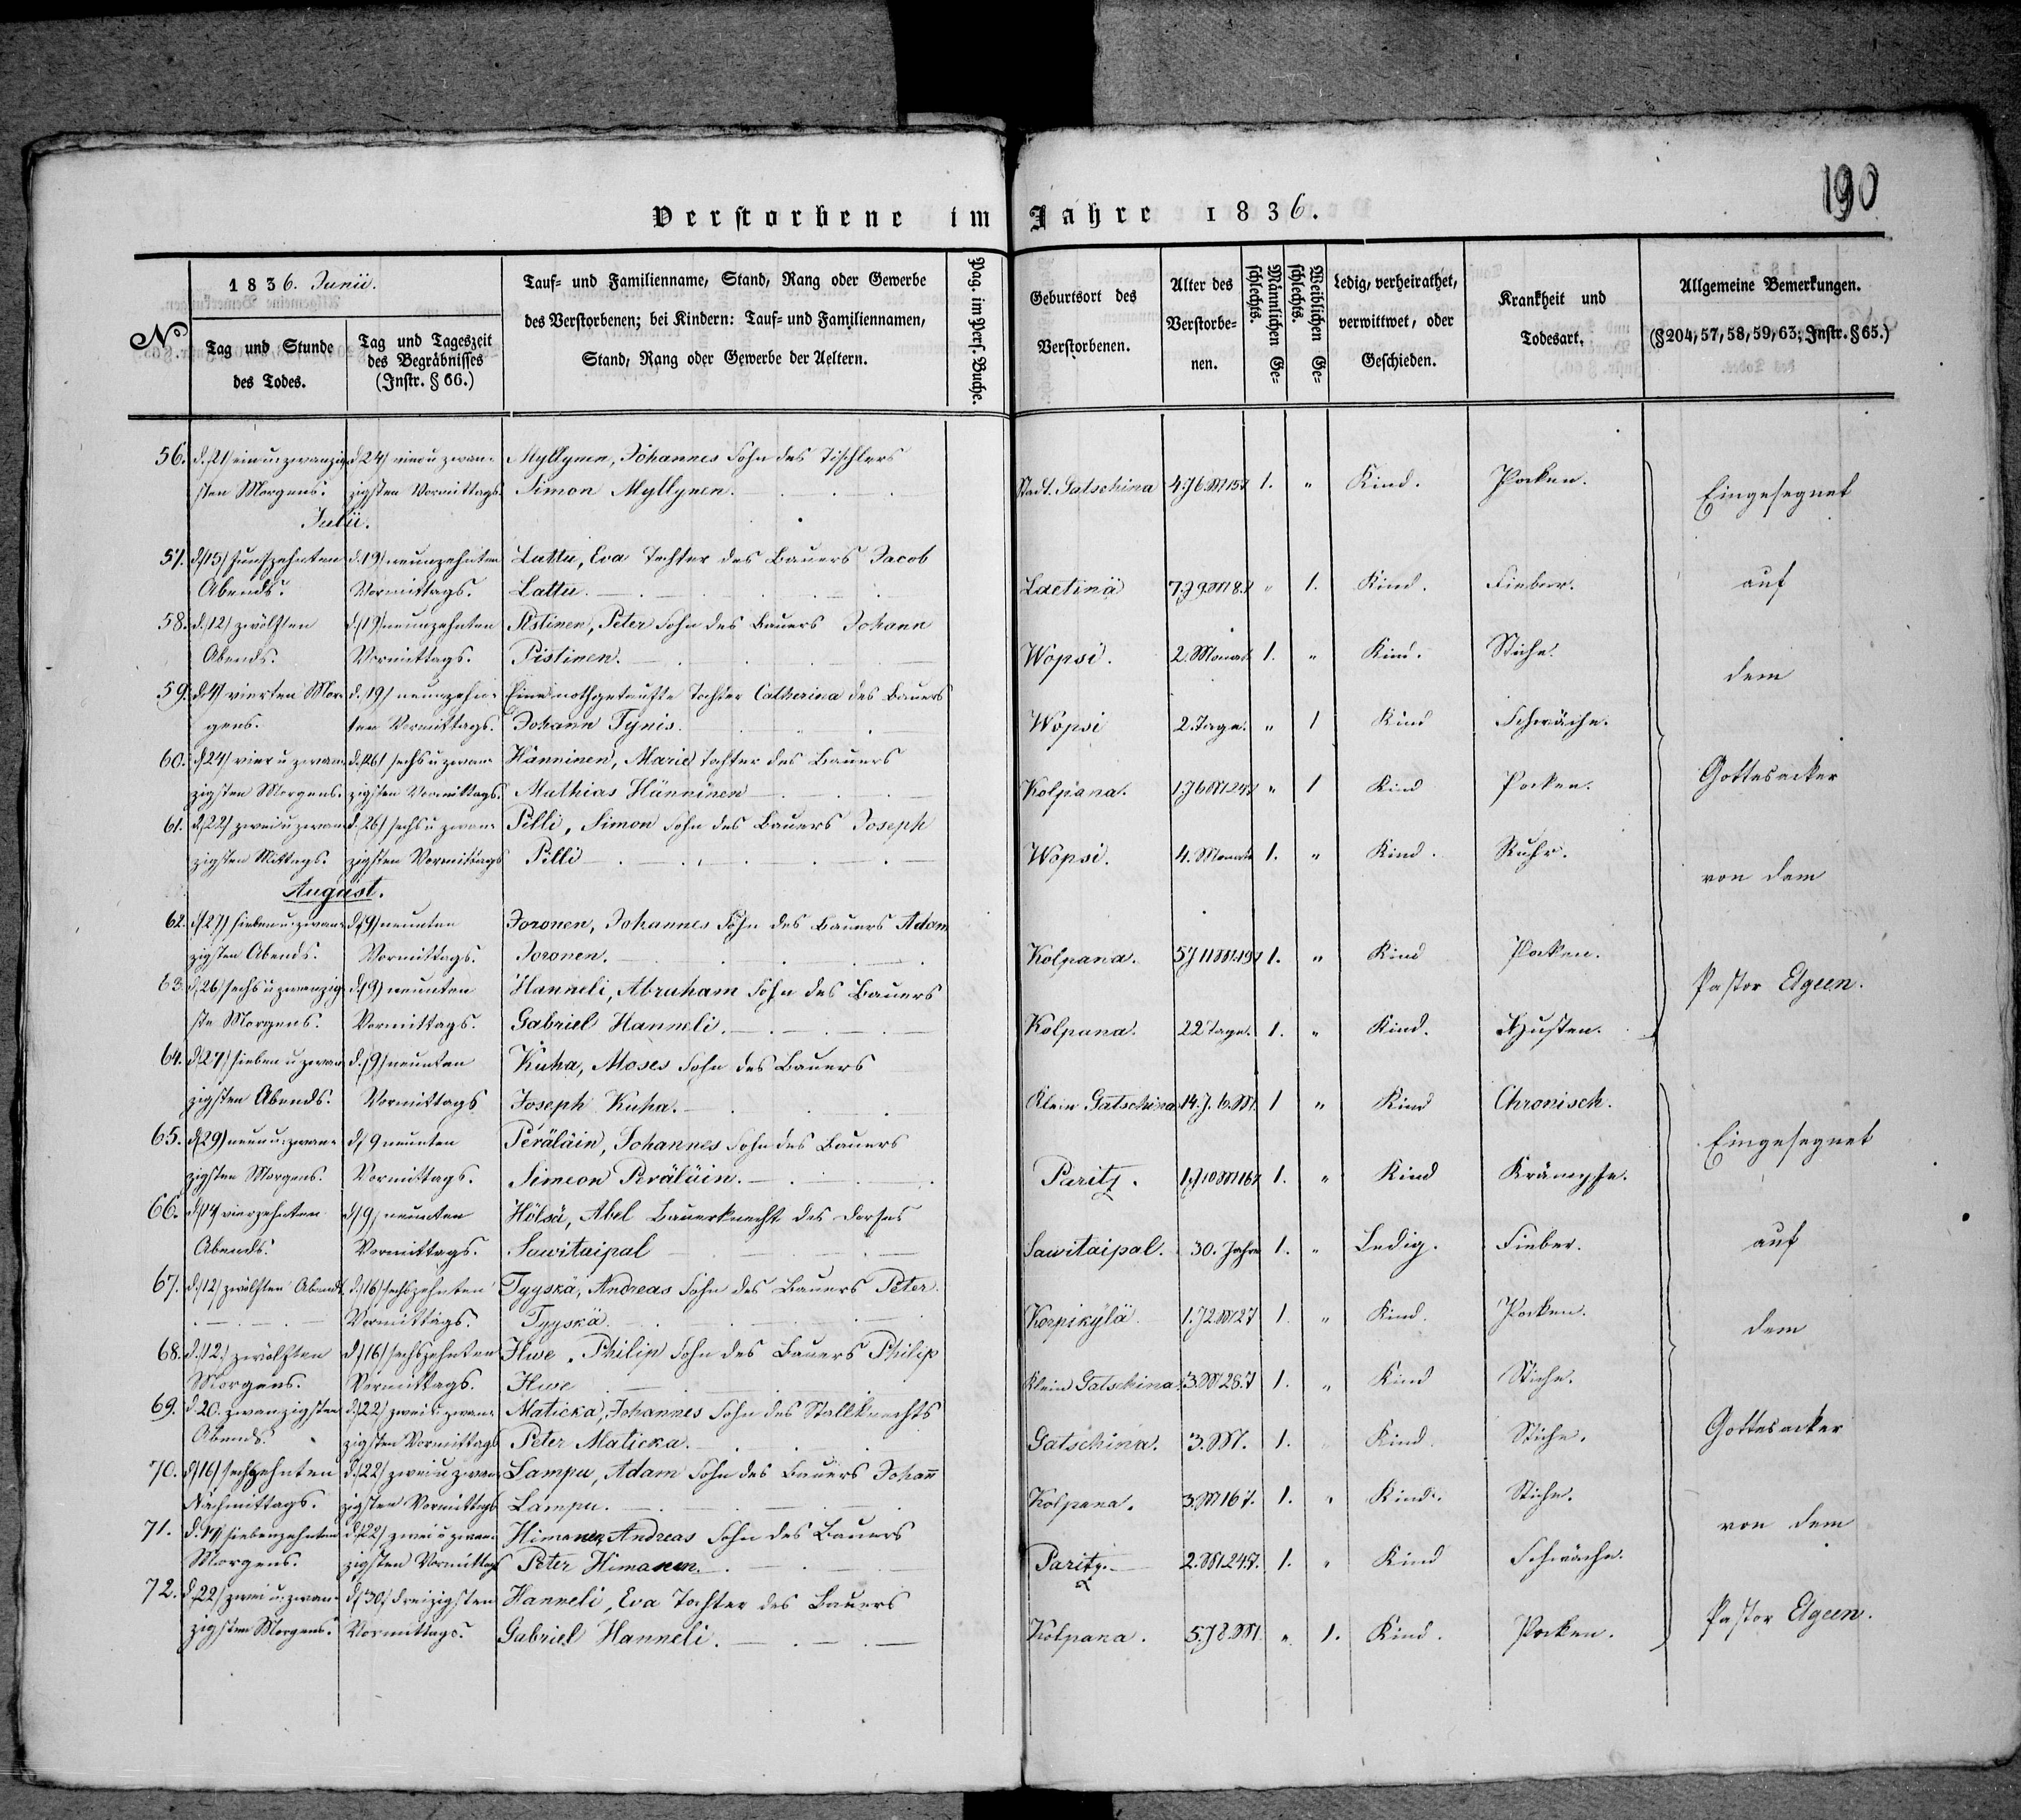 Verstorbene im Jahre 1836.
190
No.
1836. Junii.
Tag und Stunde des Todes.
Tag und Tageszeit des Begräbnisses (Instr. § 66.)
Tauf= und Familienname, Stand, Rang oder Gewerbe
des Verstorbenen; bei Kindern: Tauf= und Familiennamen,
Stand, Rang oder Gewerbe der Aeltern.
Pag. im Pers. Buche.
Geburtsort des Verstorbenen.
Alter des Verstorbe= nen.
Männlichen Ge= schlechts.
Weiblichen Ge= schlechts.
Ledig, verheirathet, verwittwet, oder Geschieden.
Krankheit und Todesart.
Allgemeine Bemerkungen.
(§ 204, 57, 58, 59, 63; Instr. § 65.)
56. d. (21) ein u. zwanzig= d. 24) vier u zwan= Myllynen, Johannes Sohn des Tischlers
sten Morgens. zigsten Vormittags. Simon Myllynen. Stadt. Gatschina 4.J 6.M 15T 1. " Kind. Pocken.
Julii.
57. d. (15) funfzehnten d. 19) neunzehnten Lattu, Eva Tochter des Bauers Jacob
Abends. Vormittags. Lattu. Laetinä 7.J 9.M 8.T " 1. Kind. Fieber.
58. d. (12) zwölften d. (19) neunzehnten Pistinen, Peter Sohn des Bauers Johann
Abends. Vormittags. Pistinen. Wopsi. 2. Monat 1. " Kind. Stiche.
59. d. (4) vierten Mor= d. 19) neunzehn= Eine nothgetaufte Tochter Catherina des Bauers
gens. ten Vormittags. Johann Tynis. Wopsi 2. Tage. " 1 Kind Schwäche.
60. d. (24) vier u zwan= d. (26) sechs u zwan= Hänninen, Marie Tochter des Bauers
zigsten Morgens. zigsten Vormittags. Mathias Hänninen Kolpana. 1J 6M 24T " 1 Kind Pocken.
61. d. (22) zwei u zwan= d. (26) sechs u zwan= Pilli, Simon Sohn des Bauers Joseph
zigsten Mittags. zigsten Vormittags Pilli Wopsi. 4. Monate 1. " Kind. Ruhr.
August.
62. d. (27) sieben u. zwan= d. (9) neunten Joronen, Johannes Sohn des Bauers Adam
zigsten Abends. Vormittags. Joronen. Kolpana. 5J 11M. 19T 1. " Kind Pocken.
63. d. (26) sechs u zwanzig= d. (9) neunten Hanneli, Abraham Sohn des Bauers
ste Morgens. Vormittags. Gabriel Hanneli. Kolpana. 22 Tage. 1. " Kind. Husten.
64. d. (27) sieben u zwan= d. (9) neunten Kuha, Moses Sohn des Bauers
zigsten Abends. Vormittags Joseph Kuha. Klein Gatschina 14.J. 6.M. 1 " Kind Chronisch.
65. d. (29) neun u. zwan= d. (9 neunten Peräläin, Johannes Sohn des Bauers
zigsten Morgens. Vormittags. Simeon Peräläin. Paritz. 1J 10M 16T 1. " Kind Krämpfe.
66. d. (14) vierzehnten d. (9) neunten Hölsä, Abel Bauerknecht des Dorfes
Abends. Vormittags. Sawitaipal Sawitaipal. 30. Jahre 1. " Ledig. Fieber.
67. d. (12) zwölften Abends. d. (16) sechszehnten Tyyskä, Andreas Sohn des Bauers Peter
Vormittags. Tyyskä. Korpikylä. 1.J 2.M 2T 1. " Kind. Pocken.
68. d. (12) zwölften d. (16) sechszehnten Hwe, Philip Sohn des Bauers Philip
Morgens. Vormittags. Hwe Klein Gatschina. 3.M 28.T 1. " Kind Stiche.
69. d. 20. zwanzigsten d. (22) zwei u zwan= Maticka, Johannes Sohn des Stallknechts
Abends. zigsten Vormittags Peter Maticka. Gatschina. 3.M. 1. " Kind Stiche.
70. d. (16) sechszehnten d. (22) zwei u zwan= Lampu, Adam Sohn des Bauers Johan̄
Nachmittags. zigsten Vormittags Lampu. Kolpana. 3.M 16T. 1. " Kind. Stiche.
71. d. (17) siebenzehnten d. (22) zwei u zwan= Himanen, Andreas Sohn des Bauers
Morgens. zigsten Vormittags Peter Himanen. Paritz. 2.M. 24T. 1. " Kind Schwäche.
72. d. (22) zwei u. zwan= d. (30) dreizigsten Hanneli, Eva Tochter des Bauers
zigsten Morgens. Vormittags. Gabriel Hanneli. Kolpana. 5.J 8.M. " 1. Kind. Pocken.
Eingesegnet
auf
dem
Gottesacker
von dem
Pastor Elgeen.
Eingesegnet
auf
dem
Gottesacker
von dem
Pastor Elgeen.